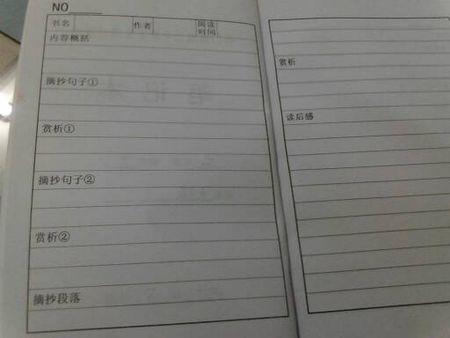 NO
书名 作者 阅读时间
内容概括
摘抄句子①
赏析①
摘抄句子②
赏析②
摘抄段落
赏析
读后感